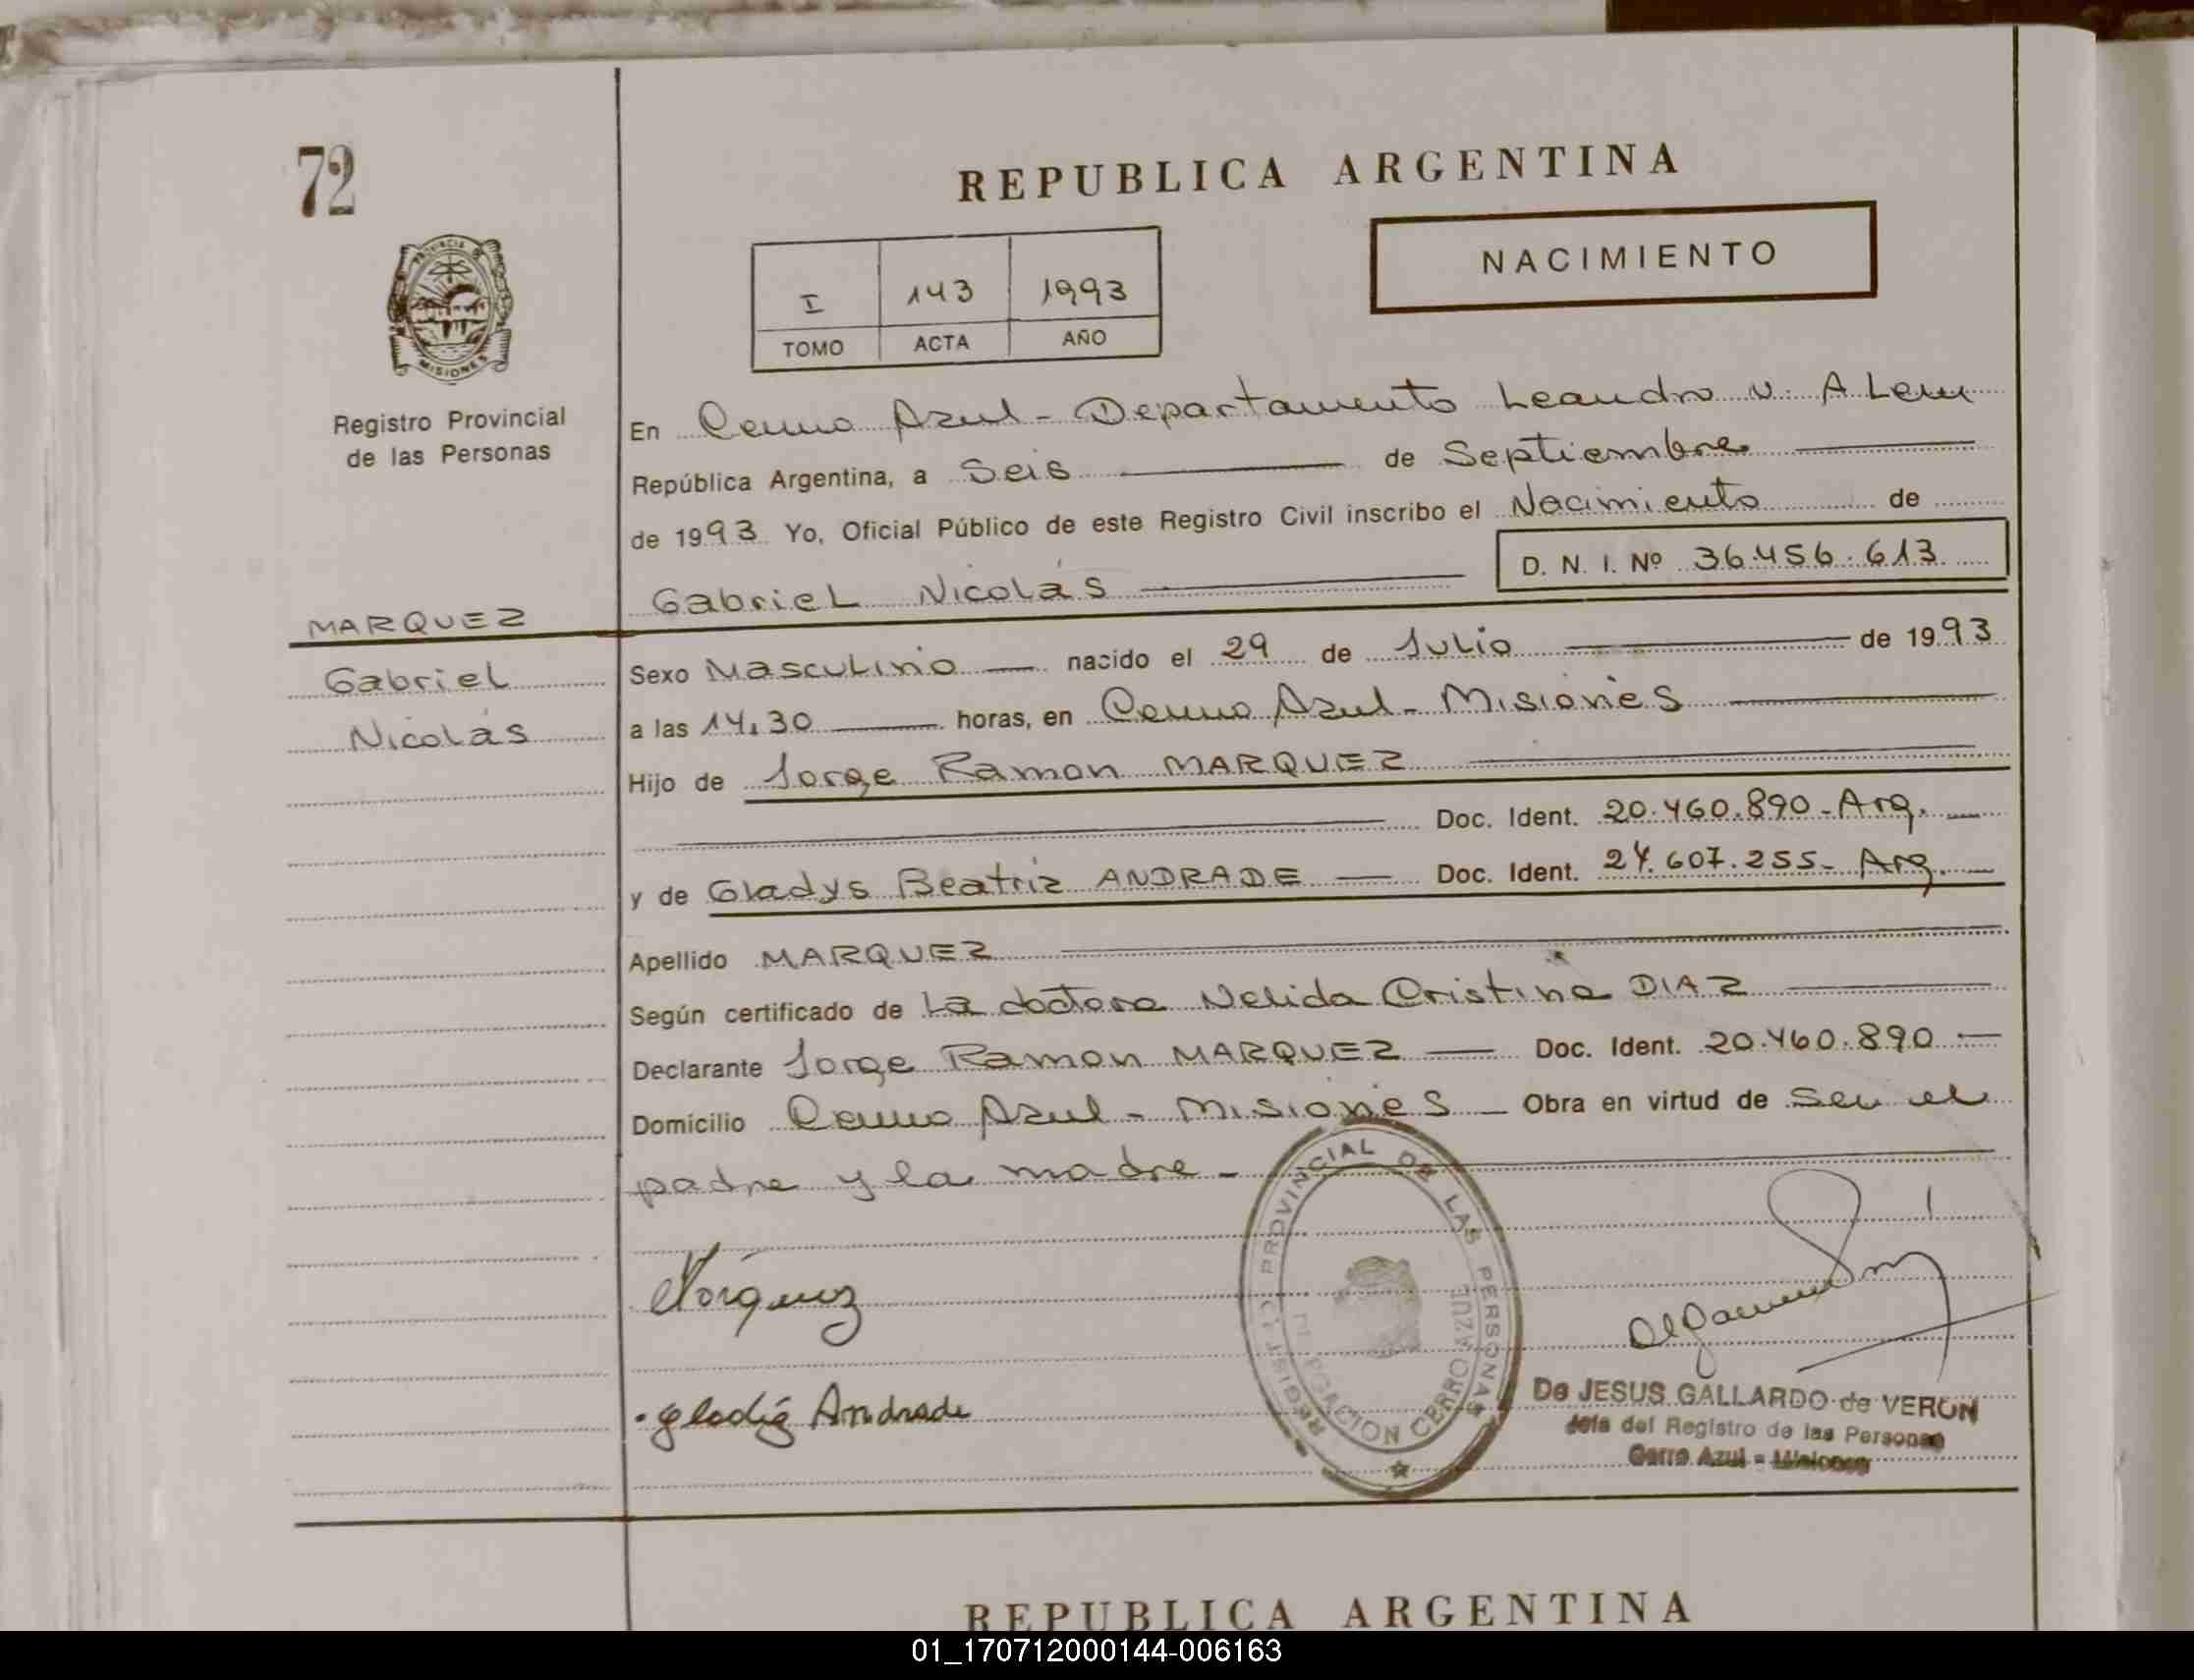 72
PROVINCIA DE
MISIONES
Registro Provincial
de las Personas
MARQUEZ
Gabriel
Nicolás
REPUBLICA ARGENTINA
NACIMIENTO
I 143 1993
TOMO ACTA AÑO
En Cerro Azul - Departamento Leandro N. ALem
República Argentina, a Seis de Septiembre
de 1993 Yo, Oficial Público de este Registro Civil inscribo el Nacimiento de
Gabriel Nicolás D. N. I. Nº 36.456.613
Sexo Masculino nacido el 29 de Julio de 1993
a las 14,30 horas, en Cerro Azul - Misiones
Hijo de Jorge Ramon MARQUEZ
Doc. Ident. 20.460.890 - Arg.
y de Gladys Beatriz ANDRADE Doc. Ident. 24.607.255 - Arg.
Apellido MARQUEZ
Según certificado de La doctora Nelida Cristina DIAZ
Declarante Jorge Ramon MARQUEZ Doc. Ident. 20.460.890
Domicilio Cerro Azul - Misiones Obra en virtud de Ser el
padre y la madre -
REGISTRO PROVINCIAL DE LAS PERSONAS
DELEGACION CERRO AZUL
Márquez
gladis Andrade
De JESUS GALLARDO de VERON
Jefa del Registro de las Personas
Cerro Azul - Misiones
REPUBLICA ARGENTINA
01_170712000144-006163